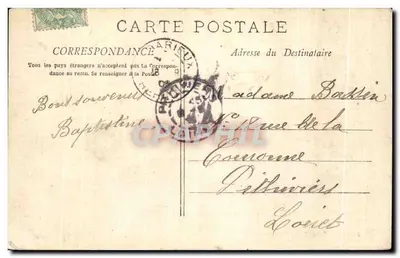 CARTE POSTALE
CORRESPONDANCE
Tous les pays étrangers n'acceptent pas la Correspondance au recto. Se renseigner à la Poste
Adresse du Destinataire
Bons souvenirs
Baptistine
Madame Bassin
18 rue de la
Couronne
Pithiviers
Loiret